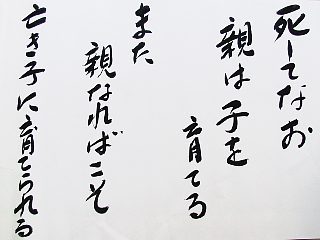 死してなお
親は子を
育てる
また
親なればこそ
亡き子に育てられる